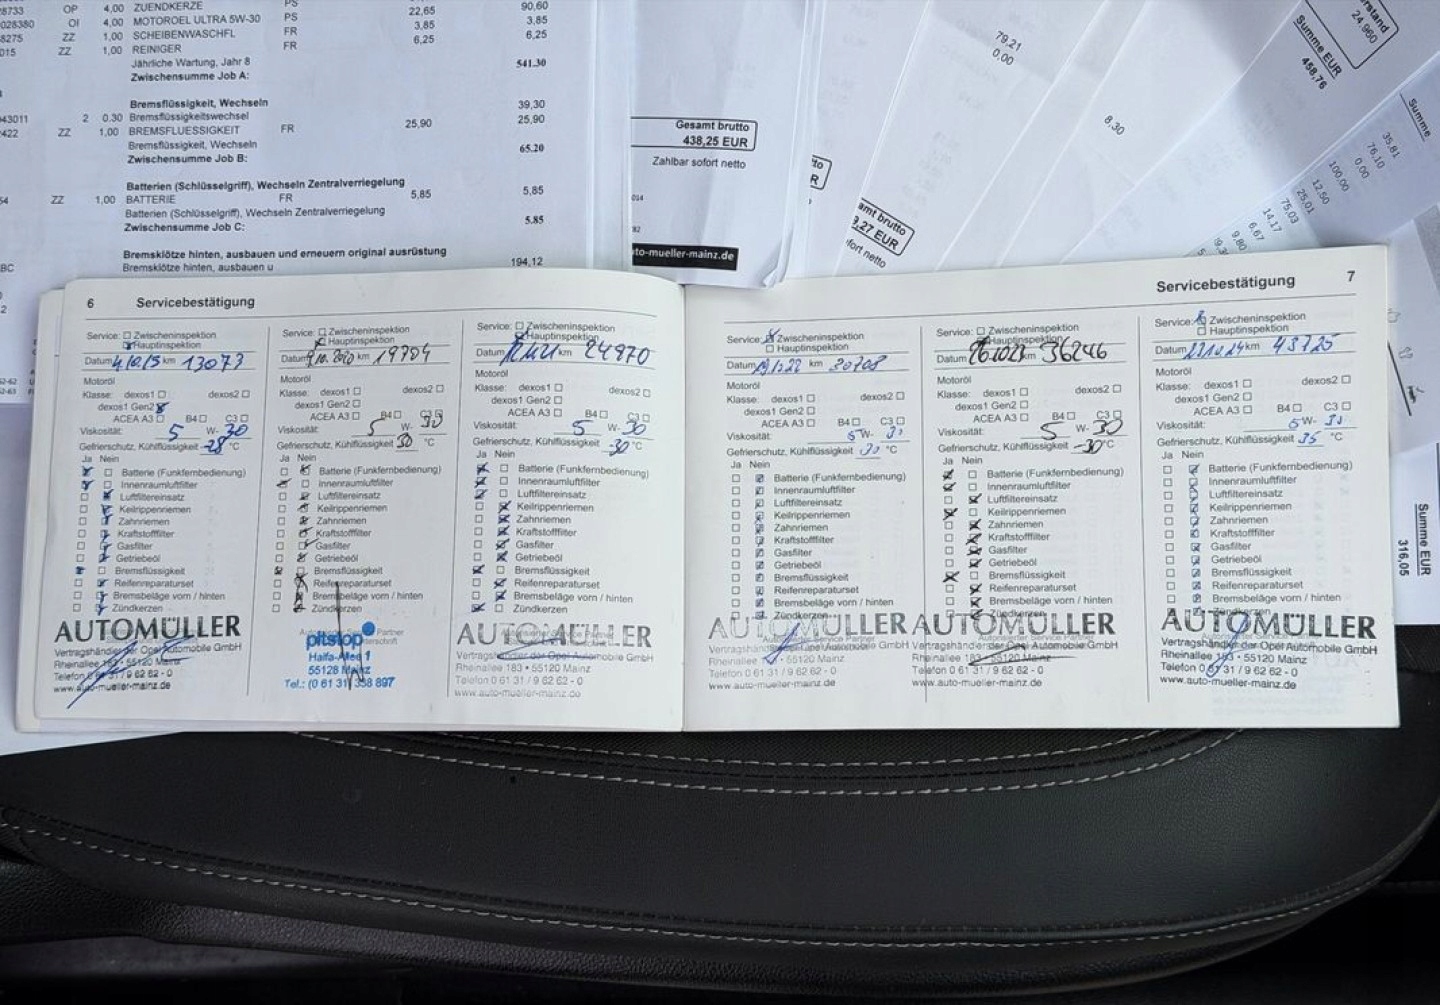 8733 OP 4,00 ZUENDKERZE PS 22,65 90,60
028380 OI 4,00 MOTOROEL ULTRA 5W-30 PS 3,85 3,85
8275 ZZ 1,00 SCHEIBENWASCHFL FR 6,25 6,25
015 ZZ 1,00 REINIGER FR
Jährliche Wartung, Jahr 8
Zwischensumme Job A: 541.30
Bremsflüssigkeit, Wechseln 39,30
43011 2 0.30 Bremsflüssigkeitswechsel 25,90
422 ZZ 1,00 BREMSFLUESSIGKEIT FR 25,90
Bremsflüssigkeit, Wechseln
Zwischensumme Job B: 65.20
Batterien (Schlüsselgriff), Wechseln Zentralverriegelung
54 ZZ 1,00 BATTERIE FR 5,85 5,85
Batterien (Schlüsselgriff), Wechseln Zentralverriegelung
Zwischensumme Job C: 5.85
Bremsklötze hinten, ausbauen und erneuern original ausrüstung
Bremsklötze hinten, ausbauen u 194,12
BC
Gesamt brutto
438,25 EUR
Zahlbar sofort netto
014
uto-mueller-mainz.de
amt brutto
9,27 EUR
ofort netto
79,21
0,00
8,30
24.960
Summe EUR
458,76
Summe
35,81
76,10
0,00
100,00
12,50
25,01
75,03
14,17
6,67
9,80
Summe EUR
316,05
6 Servicebestätigung
Service: Zwischeninspektion
Hauptinspektion
Datum km 13073
Motoröl
Klasse: dexos1 dexos2
dexos1 Gen2
ACEA A3 B4 C3
Viskosität: 5 W- 30
Gefrierschutz, Kühlflüssigkeit -28 °C
Ja Nein
Batterie (Funkfernbedienung)
Innenraumluftfilter
Luftfiltereinsatz
Keilrippenriemen
Zahnriemen
Kraftstofffilter
Gasfilter
Getriebeöl
Bremsflüssigkeit
Reifenreparaturset
Bremsbeläge vorn / hinten
Zündkerzen
AUTOMÜLLER
Vertragshändler der Opel Automobile GmbH
Rheinallee 183 • 55120 Mainz
Telefon 0 61 31 / 9 62 62 - 0
www.auto-mueller-mainz.de
Service: Zwischeninspektion
Hauptinspektion
Datum km 19704
Motoröl
Klasse: dexos1 dexos2
dexos1 Gen2
ACEA A3 B4 C3
Viskosität: 5 W- 30
Gefrierschutz, Kühlflüssigkeit 30 °C
Ja Nein
Batterie (Funkfernbedienung)
Innenraumluftfilter
Luftfiltereinsatz
Keilrippenriemen
Zahnriemen
Kraftstofffilter
Gasfilter
Getriebeöl
Bremsflüssigkeit
Reifenreparaturset
Bremsbeläge vorn / hinten
Zündkerzen
pitstop
Haifa-Allee 1
55128 Mainz
Tel.: (0 61 31) 358 897
Service: Zwischeninspektion
Hauptinspektion
Datum km 24970
Motoröl
Klasse: dexos1 dexos2
dexos1 Gen2
ACEA A3 B4 C3
Viskosität: 5 W- 30
Gefrierschutz, Kühlflüssigkeit -30 °C
Ja Nein
Batterie (Funkfernbedienung)
Innenraumluftfilter
Luftfiltereinsatz
Keilrippenriemen
Zahnriemen
Kraftstofffilter
Gasfilter
Getriebeöl
Bremsflüssigkeit
Reifenreparaturset
Bremsbeläge vorn / hinten
Zündkerzen
AUTOMÜLLER
Vertragshändler der Opel Automobile GmbH
Rheinallee 183 • 55120 Mainz
Telefon 0 61 31 / 9 62 62 - 0
www.auto-mueller-mainz.de
Servicebestätigung 7
Service: Zwischeninspektion
Hauptinspektion
Datum km 30708
Motoröl
Klasse: dexos1 dexos2
dexos1 Gen2
ACEA A3 B4 C3
Viskosität: 5 W-
Gefrierschutz, Kühlflüssigkeit °C
Ja Nein
Batterie (Funkfernbedienung)
Innenraumluftfilter
Luftfiltereinsatz
Keilrippenriemen
Zahnriemen
Kraftstofffilter
Gasfilter
Getriebeöl
Bremsflüssigkeit
Reifenreparaturset
Bremsbeläge vorn / hinten
Zündkerzen
AUTOMÜLLER
Vertragshändler der Opel Automobile GmbH
Rheinallee • 55120 Mainz
Telefon 0 61 31 / 9 62 62 - 0
www.auto-mueller-mainz.de
Service: Zwischeninspektion
Hauptinspektion
Datum km 36246
Motoröl
Klasse: dexos1 dexos2
dexos1 Gen2
ACEA A3 B4 C3
Viskosität: 5 W- 30
Gefrierschutz, Kühlflüssigkeit -30 °C
Ja Nein
Batterie (Funkfernbedienung)
Innenraumluftfilter
Luftfiltereinsatz
Keilrippenriemen
Zahnriemen
Kraftstofffilter
Gasfilter
Getriebeöl
Bremsflüssigkeit
Reifenreparaturset
Bremsbeläge vorn / hinten
Zündkerzen
AUTOMÜLLER
Vertragshändler der Opel Automobile GmbH
Rheinallee 183 • 55120 Mainz
Telefon 0 61 31 / 9 62 62 - 0
www.auto-mueller-mainz.de
Service: Zwischeninspektion
Hauptinspektion
Datum km 43725
Motoröl
Klasse: dexos1 dexos2
dexos1 Gen2
ACEA A3 B4 C3
Viskosität: 5 W-
Gefrierschutz, Kühlflüssigkeit 35 °C
Ja Nein
Batterie (Funkfernbedienung)
Innenraumluftfilter
Luftfiltereinsatz
Keilrippenriemen
Zahnriemen
Kraftstofffilter
Gasfilter
Getriebeöl
Bremsflüssigkeit
Reifenreparaturset
Bremsbeläge vorn / hinten
Zündkerzen
AUTOMÜLLER
Vertragshändler der Opel Automobile GmbH
Rheinallee 183 • 55120 Mainz
Telefon 0 61 31 / 9 62 62 - 0
www.auto-mueller-mainz.de